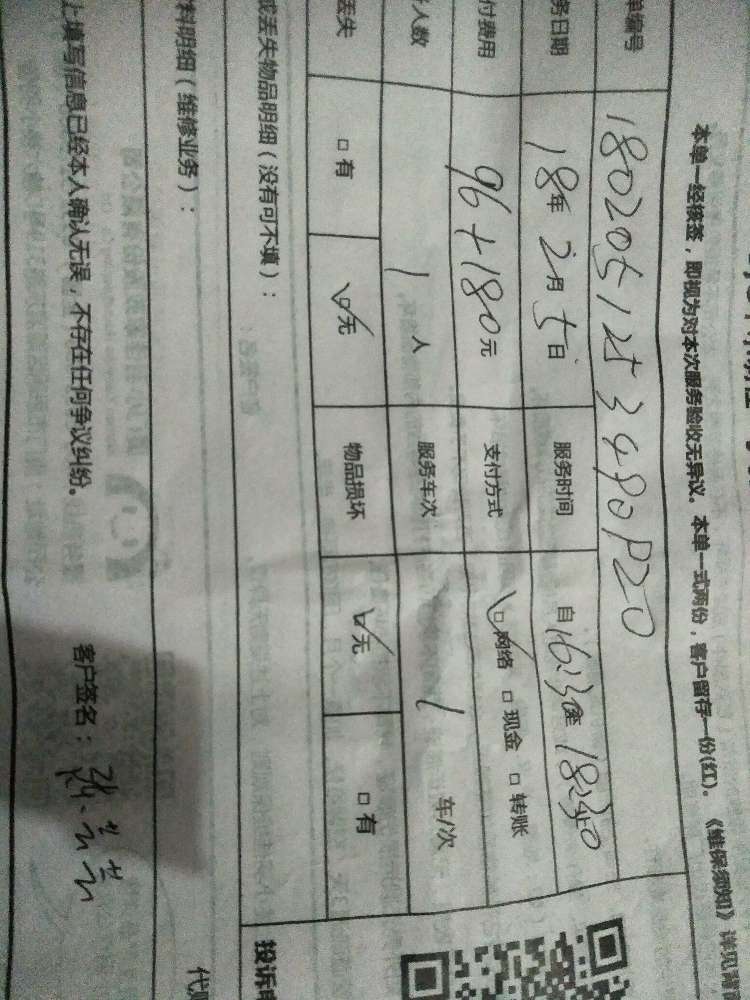 本单一经接签，即视为对本次服务验收无异议。本单一式两份，客户留存一份(红)。《维保须知》详见背面
单编号 1802051253490P20
务日期 18年 2月 5日 服务时间 自16:30至 18:30止
付费用 96+180元 支付方式 ☑网络 □现金 □转账
人数 1 人 服务车次 1 车/次
丢失 □有 ☑无 物品损坏 ☑无 □有
或丢失物品明细（没有可不填）：
投诉电
料明细（维修业务）：
上填写信息已经本人确认无误，不存在任何争议纠纷。 客户签名：